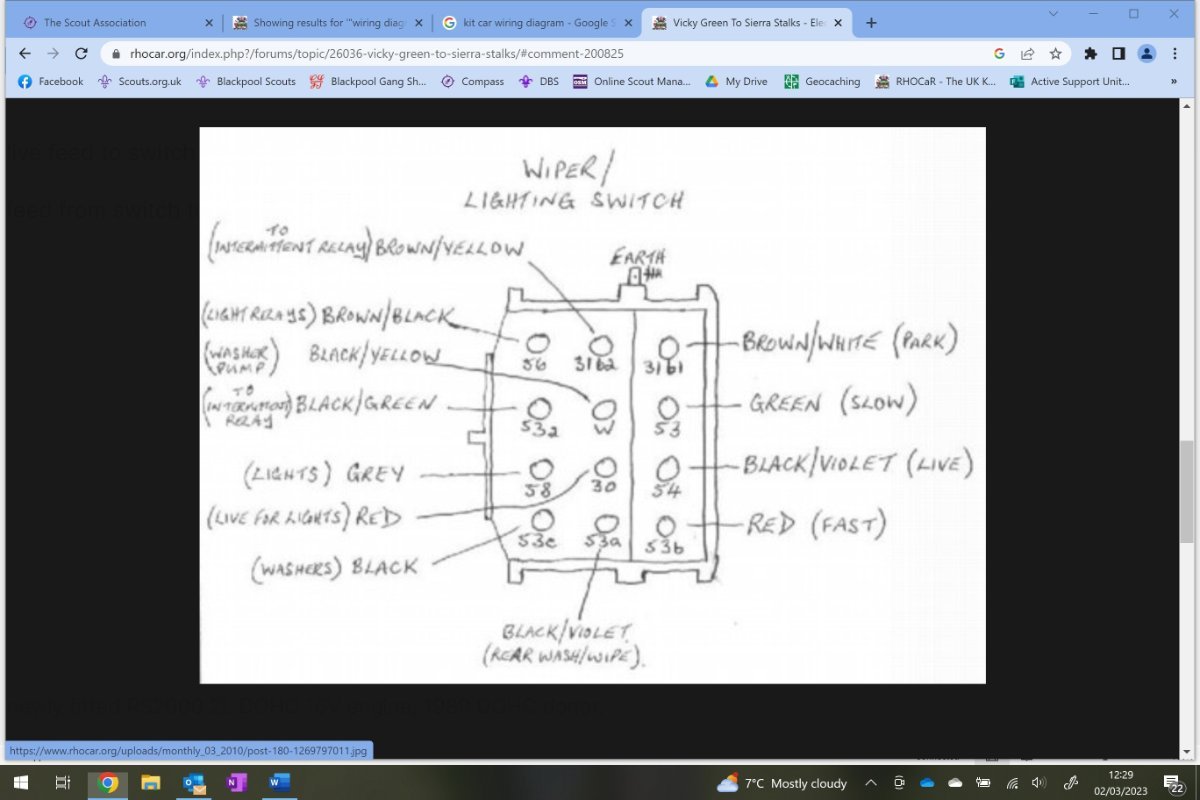 The Scout Association
Showing results for '"wiring diag
kit car wiring diagram - Google S
Vicky Green To Sierra Stalks - Elec
rhocar.org/index.php?/forums/topic/26036-vicky-green-to-sierra-stalks/#comment-200825
Facebook
Scouts.org.uk
Blackpool Scouts
Blackpool Gang Sh...
Compass
DBS
Online Scout Mana...
My Drive
Geocaching
RHOCaR - The UK K...
Active Support Unit...
»
ive feed to switch
eed from switch t
WIPER/
LIGHTING SWITCH
(TO
INTERMITTENT RELAY) BROWN/YELLOW
EARTH
(LIGHT RELAYS) BROWN/BLACK
(WASHER
PUMP) BLACK/YELLOW
(TO
INTERMITTENT
RELAY) BLACK/GREEN
(LIGHTS) GREY
(LIVE FOR LIGHTS) RED
(WASHERS) BLACK
56 31b2 31b1
53a W 53
58 30 54
53c 53a 53b
BROWN/WHITE (PARK)
GREEN (SLOW)
BLACK/VIOLET (LIVE)
RED (FAST)
BLACK/VIOLET
(REAR WASH/WIPE).
https://www.rhocar.org/uploads/monthly_03_2010/post-180-1269797011.jpg
7°C Mostly cloudy
12:29
02/03/2023
22